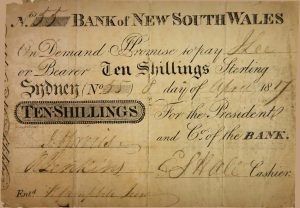 No 55 BANK of NEW SOUTH WALES
On Demand I Promise to pay
or Bearer Ten Shillings Sterling
Sydney No 55 8 day of April 1817
TEN SHILLINGS For the President
and Co. of the BANK.
Jenkins E S Hall Cashier.
Entd. Campbell Junr